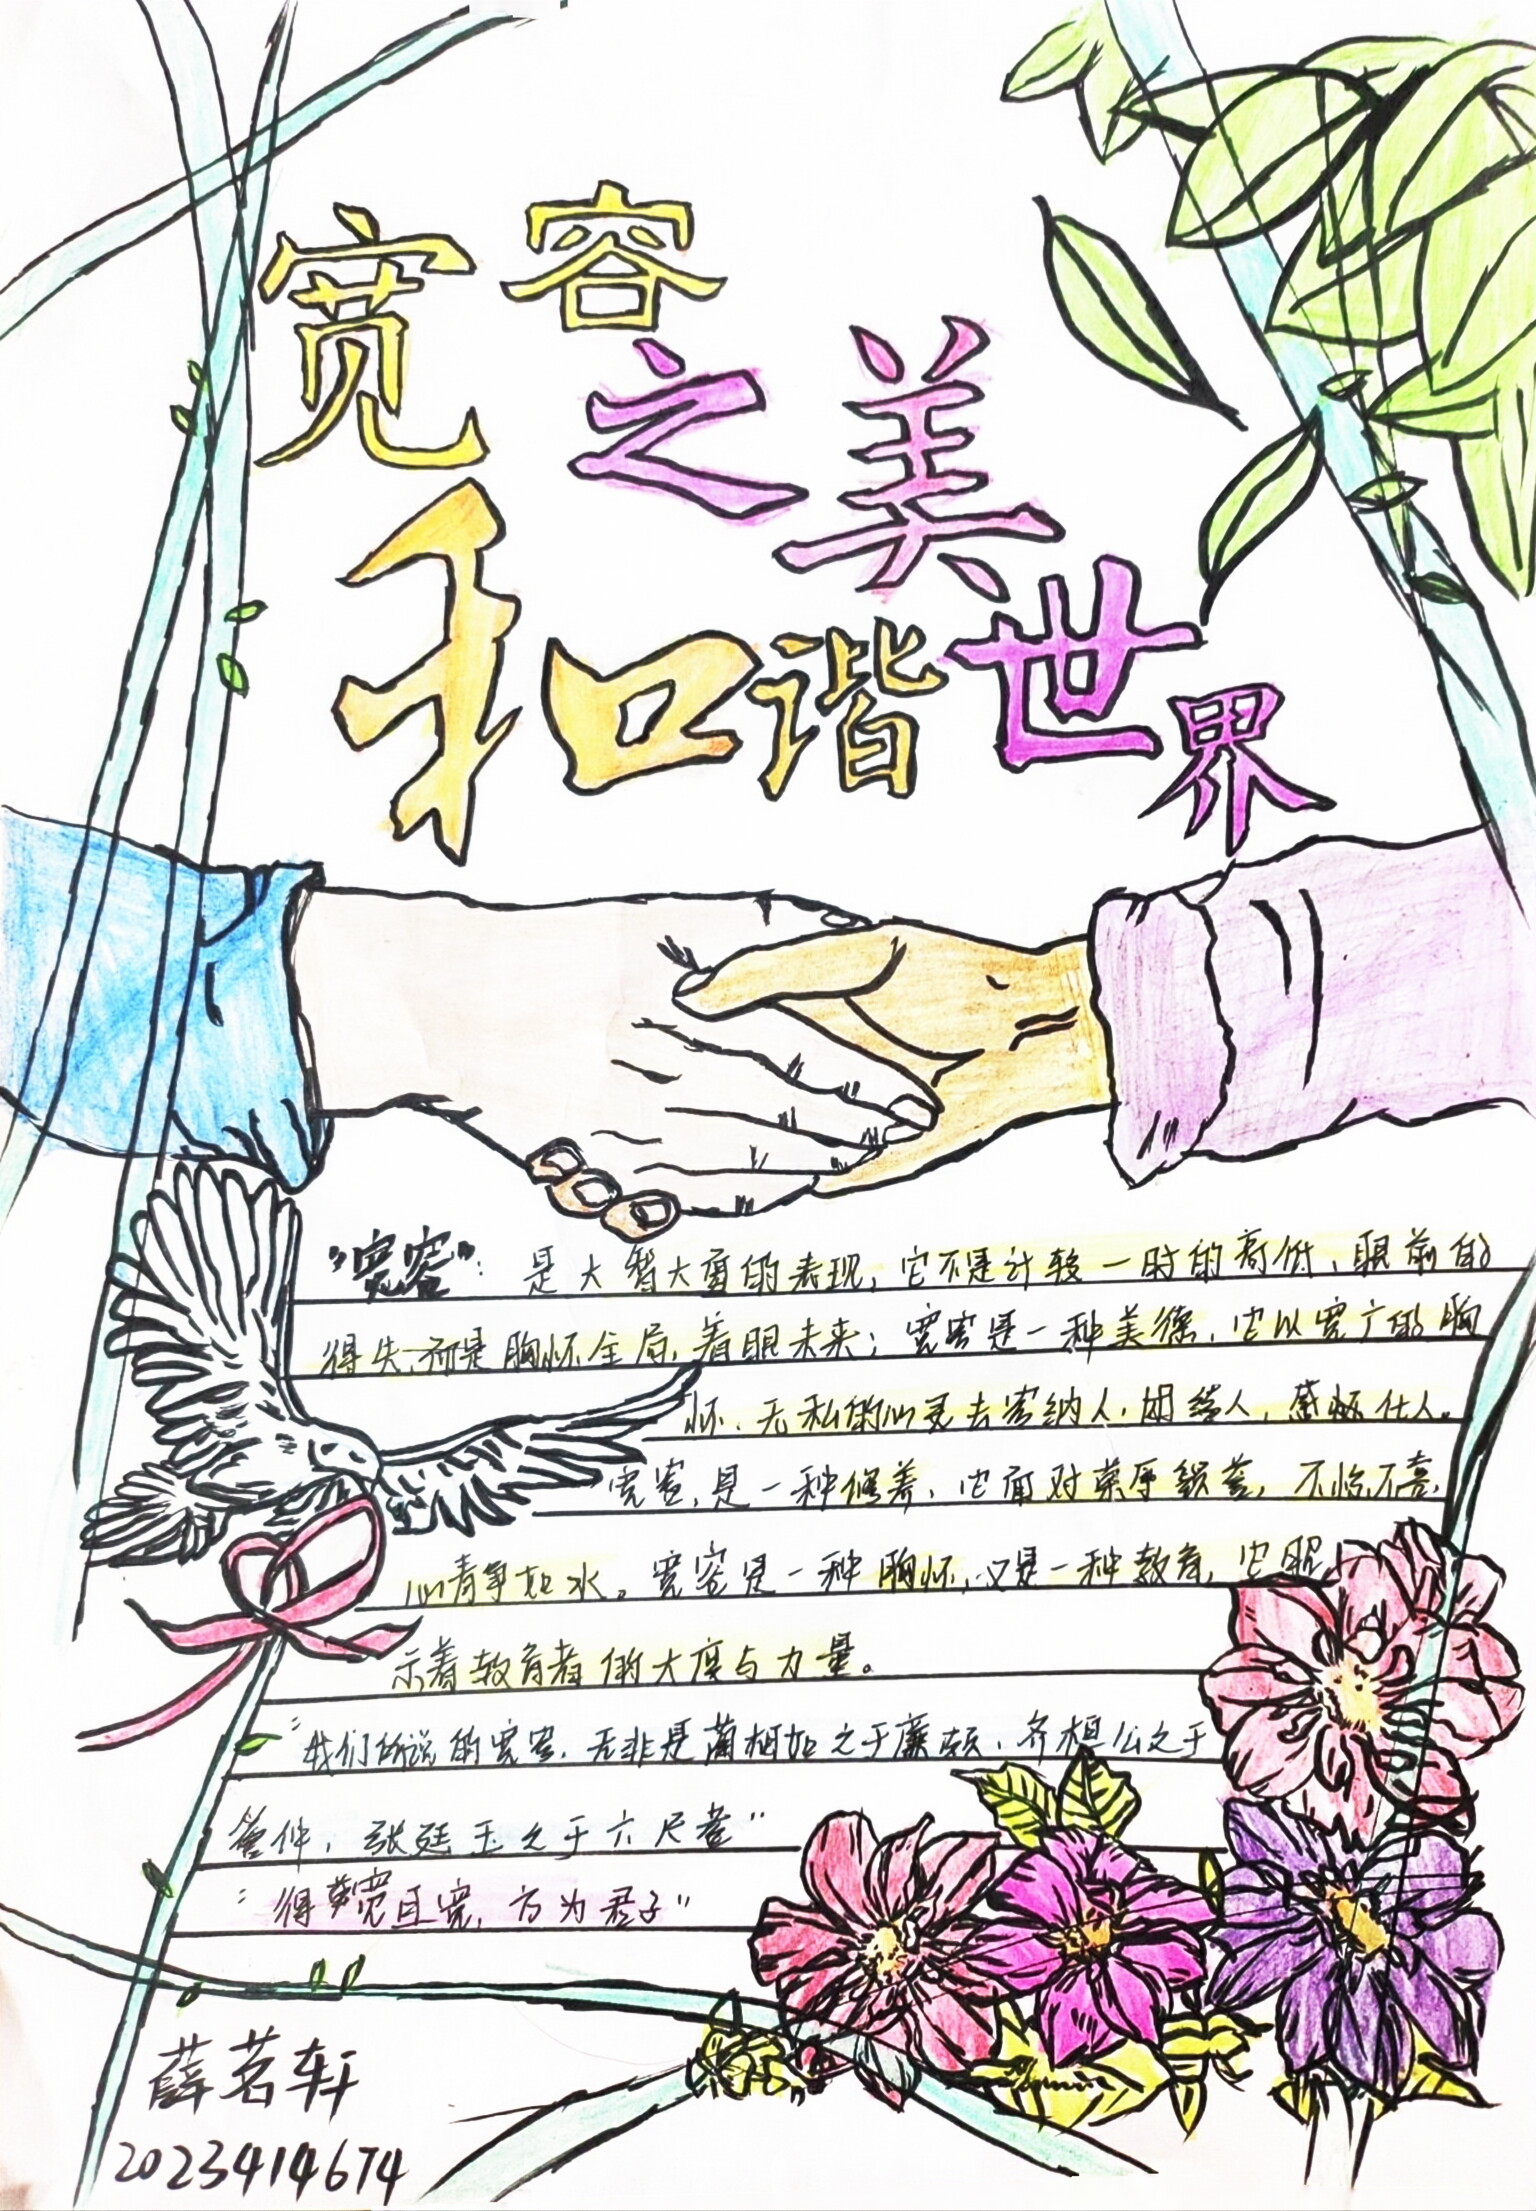 宽容
之美
和谐世界
"宽容"：是大智大勇的表现，它不是计较一时的高低，眼前的
得失，而是胸怀全局，着眼未来；宽容是一种美德，它以宽广的胸
怀、无私的心灵去容纳人，团结人，感怀人。
宽容，是一种修养，它面对荣辱毁誉，不惊不喜，
心静如水。宽容是一种胸怀，又是一种教育，它昭
示着教育者的大度与力量。
"我们所说的宽容，无非是蔺相如之于廉颇，齐桓公之于
管仲，张廷玉之于六尺巷"
"得宽且宽，方为君子"
薛茗轩
2023414674